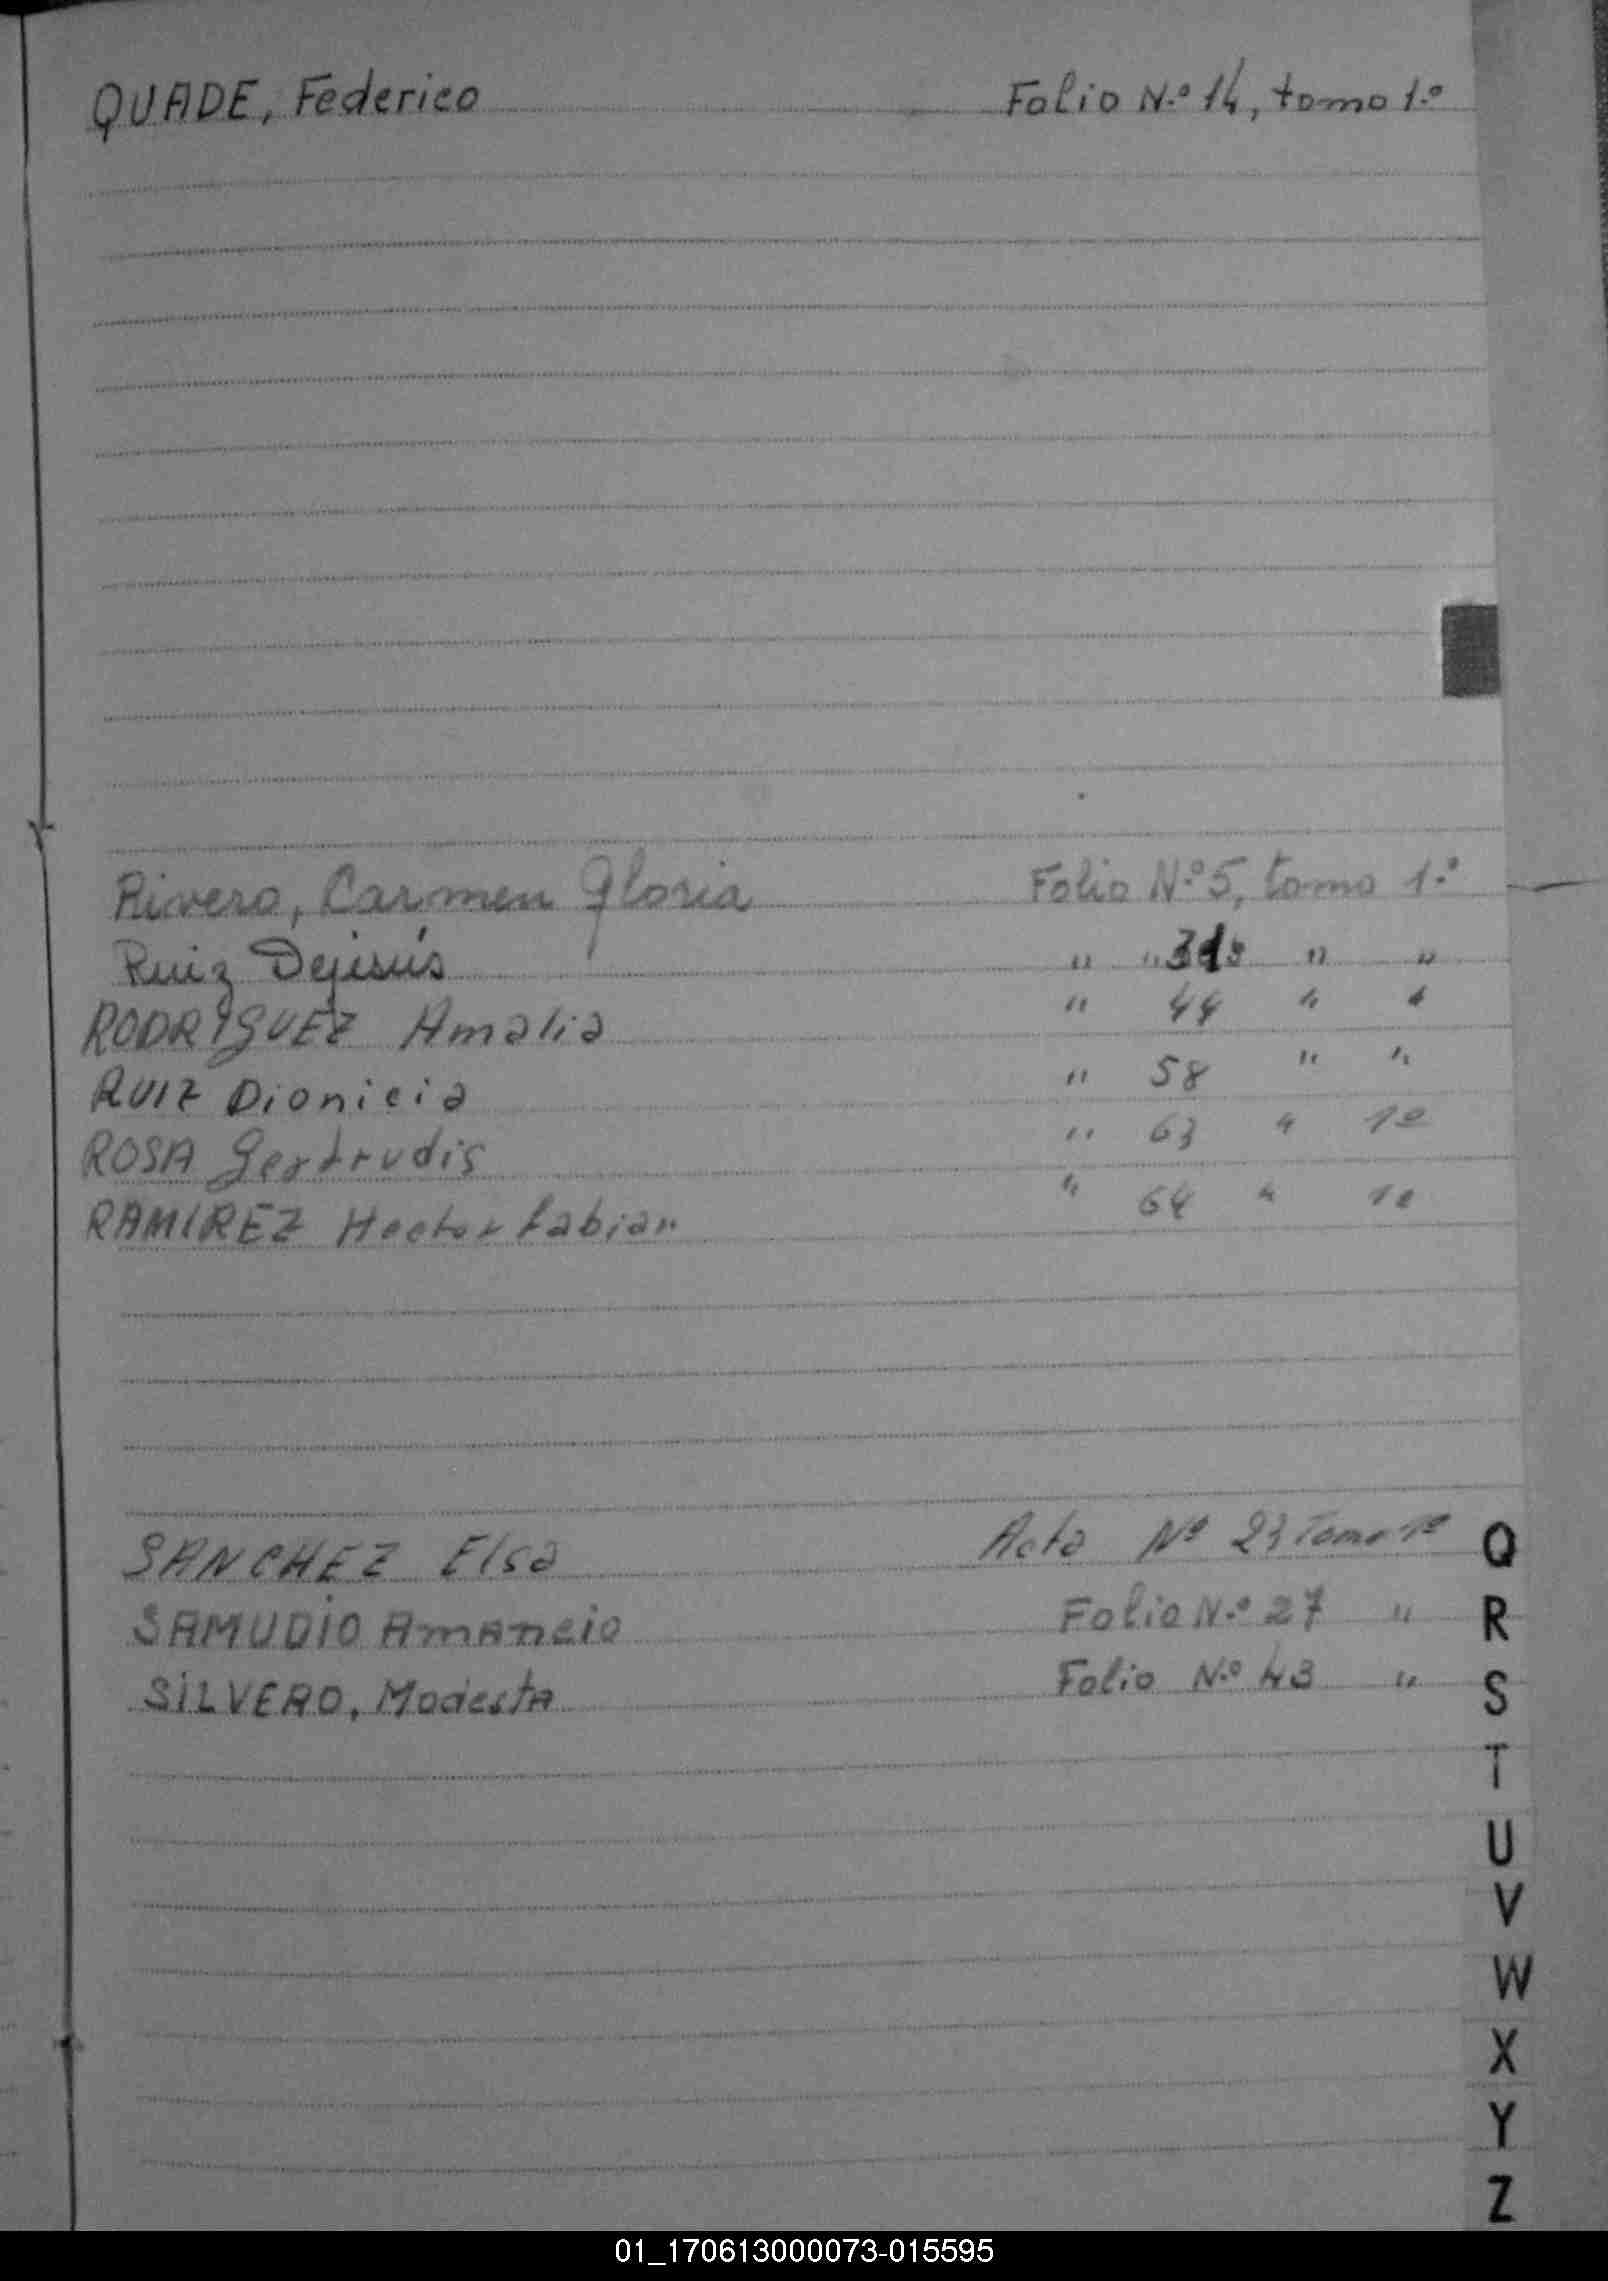 QUADE, Federico Folio N.º 14, tomo 1.º
Rivero, Carmen Gloria Folio N.º 5, tomo 1.º
Ruiz Dejesús " " " "
RODRIGUEZ Amalia " 44 " "
RUIZ Dionicia " 58 " "
ROSA Gertrudis " 63 " 1º
RAMIREZ Hector Fabian " 64 " 1º
SANCHEZ Elsa Acta Nº 23 Tomo 1º
SAMUDIO Amancio Folio N.º 27 "
SILVERO, Modesta Folio N.º 43 "
Q
R
S
T
U
V
W
X
Y
Z
01_170613000073-015595